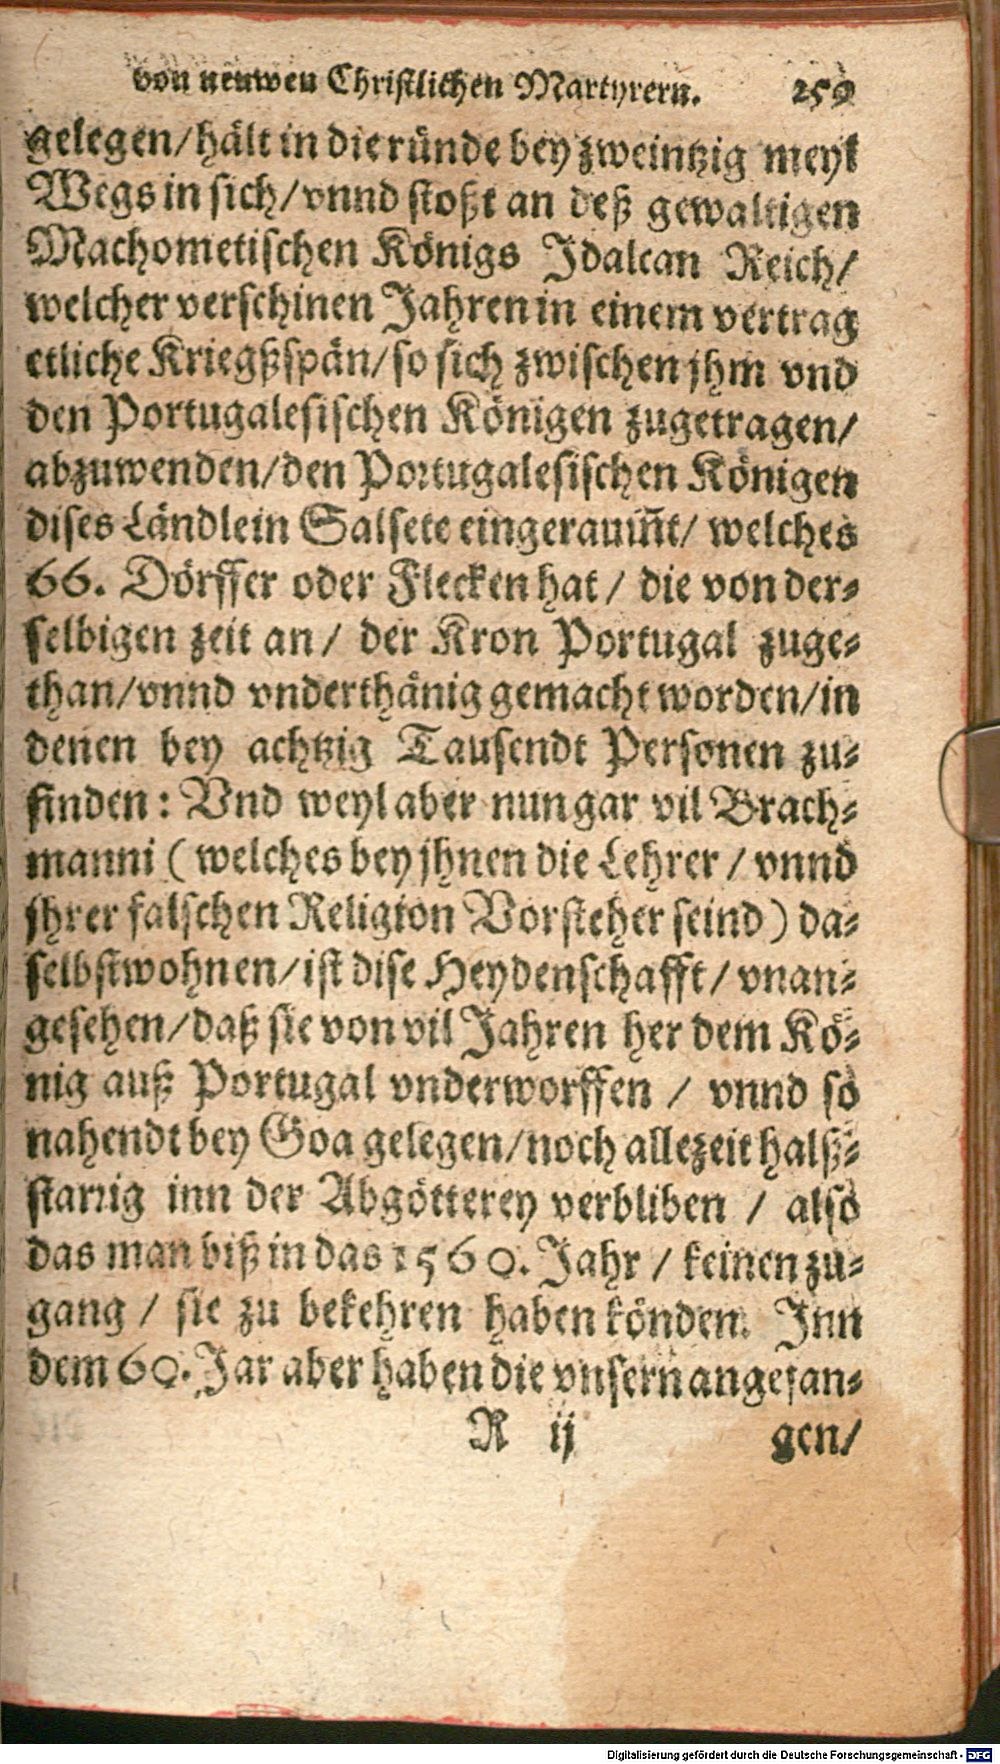 von neuwen Christlichen Martyrern. 259
gelegen/ hält in die ründe bey zweintzig meyl
Wegs in sich/ vnnd stoßt an deß gewaltigen
Machometischen Königs Idalcan Reich/
welcher verschinen Jahren in einem vertrag
etliche Kriegßspän/ so sich zwischen jhm vnd
den Portugalesischen Königen zugetragen/
abzuwenden/ den Portugalesischen Königen
dises Ländlein Salsete eingeraum̃t/ welches
66. Dörffer oder Flecken hat / die von der-
selbigen zeit an / der Kron Portugal zuge-
than/ vnnd vnderthänig gemacht worden/ in
denen bey achtzig Tausendt Personen zu-
finden : Vnd weyl aber nun gar vil Brach-
manni ( welches bey jhnen die Lehrer / vnnd
jhrer falschen Religion Vorsteher seind ) da-
selbst wohnen/ ist dise Heydenschafft / vnan-
gesehen/ daß sie von vil Jahren her dem Kö-
nig auß Portugal vnderworffen / vnnd so
nahendt bey Goa gelegen/ noch allezeit halß-
starrig inn der Abgötterey verbliben / also
das man biß in das 1560. Jahr / keinen zu-
gang / sie zu bekehren haben könden. Inn
dem 60. Jar aber haben die vnsern angefan-
R ij gen/
Digitalisierung gefördert durch die Deutsche Forschungsgemeinschaft - DFG